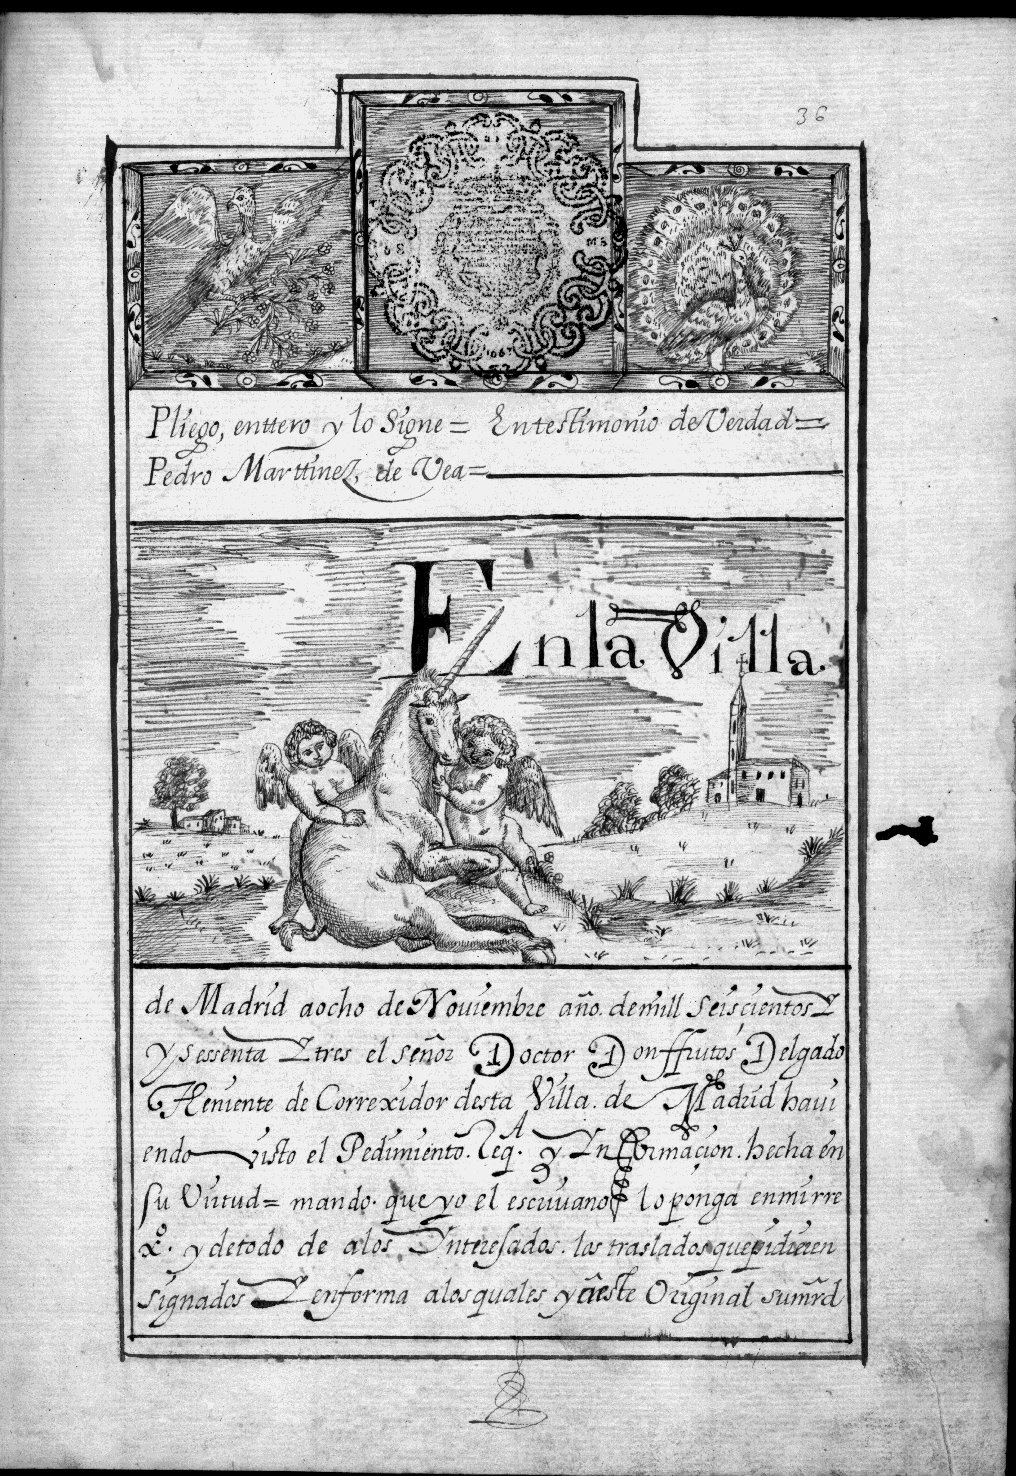 36
1667
Pliego, enttero y lo Signe = En testimonio de Verdad =
Pedro Marttinez, de Vea =
En la Villa
de Madrid a ocho de Nouiembre año. de mill seiscientos
y sessenta y tres el señor Doctor Don ffrutos Delgado
Theniente de Correxidor desta Villa. de Madrid haui
endo visto el Pedimiento. Req. y Informacion. hecha en
su Virtud = mando. que yo el escriuano lo ponga en mi rre
xº. y de todo de a los Ynteresados. los traslados que pidieren
signados y en forma a los quales y a este Original su mrd